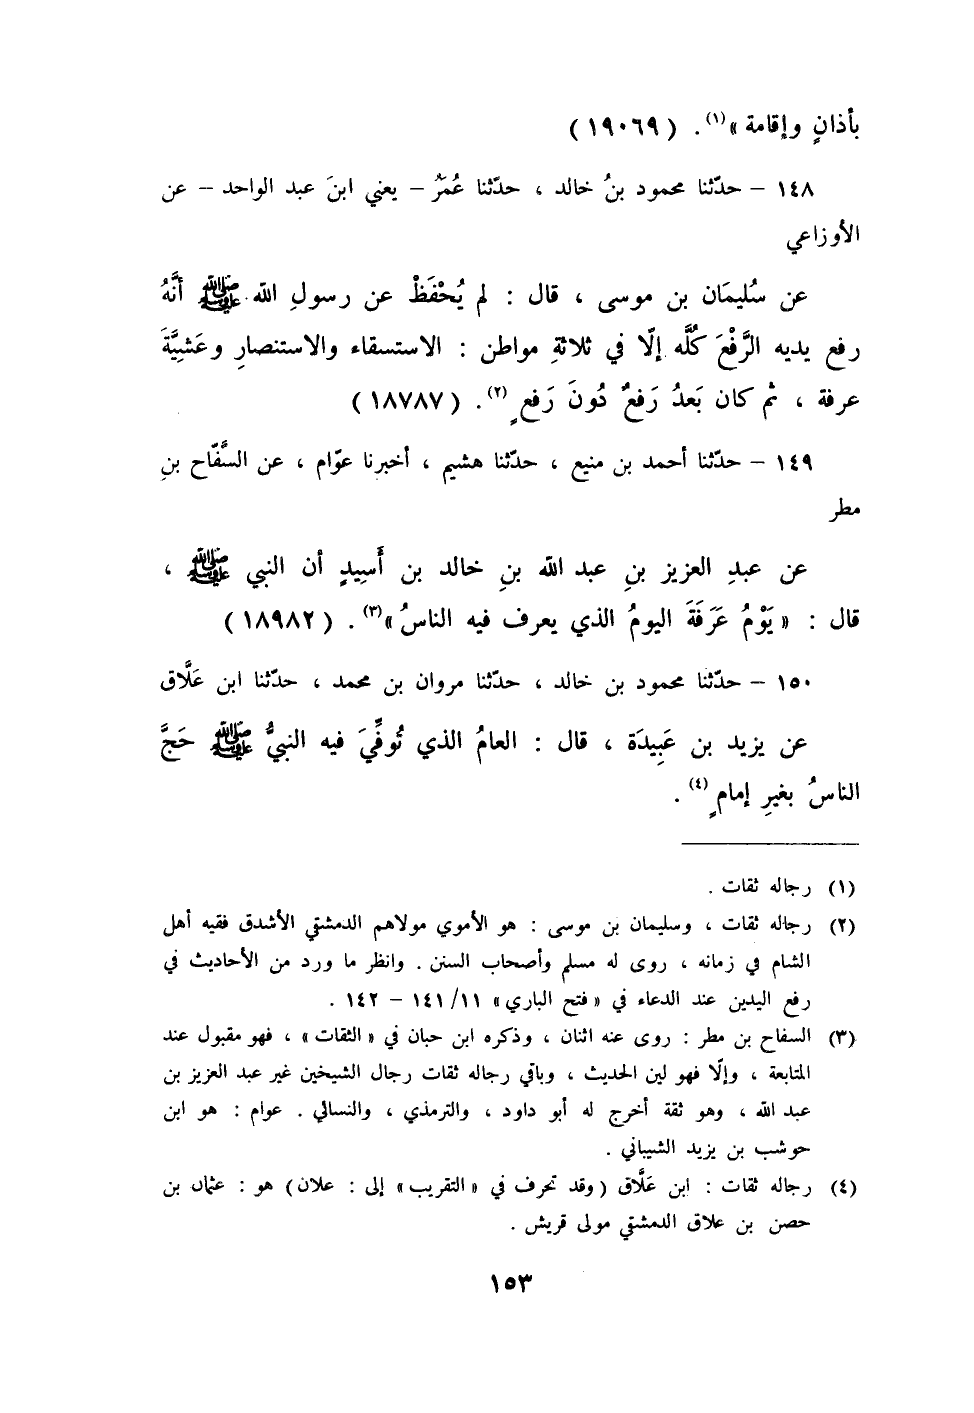 بأذانٍ وإقامة »(١) . (١٩٠٦٩)
١٤٨ – حدّثنا محمود بنُ خالد ، حدّثنا عُمَرُ – يعني ابنَ عبد الواحد – عن
الأوزاعي
عن سُليمَان بن موسى ، قال : لم يُحْفَظْ عن رسولِ الله ﷺ أنَّهُ
رفع يديه الرَّفْعَ كُلَّه إلّا في ثلاثةِ مواطن : الاستسقاء والاستنصارِ وعَشيَّةَ
عرفة ، ثم كان بَعدُ رَفعٌ دُونَ رَفعٍ(٢) . (١٨٧٨٧)
١٤٩ – حدّثنا أحمد بن منيع ، حدّثنا هشيم ، أخبرنا عوّام ، عن السَّفّاح بنِ
مطر
عن عبدِ العزيز بنِ عبد الله بنِ خالد بن أَسِيدٍ أن النبي ﷺ ،
قال : « يَوْمُ عَرَفَةَ اليومُ الذي يعرف فيه الناسُ »(٣) . (١٨٩٨٢)
١٥٠ – حدّثنا محمود بن خالد ، حدّثنا مروان بن محمد ، حدّثنا ابن عَلَّاق
عن يزيد بن عَبِيدَة ، قال : العامُ الذي تُوفِّيَ فيه النبيُّ ﷺ حَجَّ
الناسُ بغيرِ إمامٍ(٤) .
(١) رجاله ثقات .
(٢) رجاله ثقات ، وسليمان بن موسى : هو الأموي مولاهم الدمشقي الأشدق فقيه أهل
الشام في زمانه ، روى له مسلم وأصحاب السنن . وانظر ما ورد من الأحاديث في
رفع اليدين عند الدعاء في « فتح الباري » ١١/ ١٤١ – ١٤٢ .
(٣) السفاح بن مطر : روى عنه اثنان ، وذكره ابن حبان في « الثقات » ، فهو مقبول عند
المتابعة ، وإلّا فهو لين الحديث ، وباقي رجاله ثقات رجال الشيخين غير عبد العزيز بن
عبد الله ، وهو ثقة أخرج له أبو داود ، والترمذي ، والنسائي . عوام : هو ابن
حوشب بن يزيد الشيباني .
(٤) رجاله ثقات : ابن عَلَّاق (وقد تحرف في « التقريب » إلى : علان) هو : عثمان بن
حصن بن علاق الدمشقي مولى قريش .
١٥٣